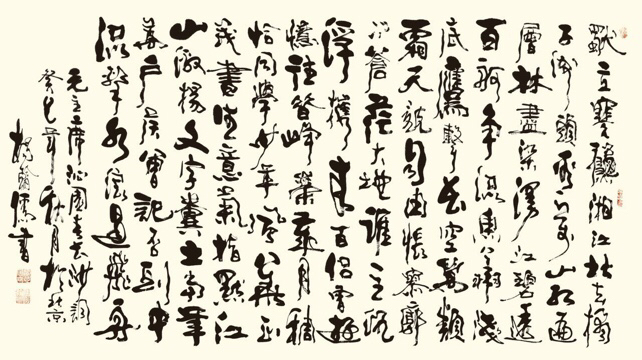 獨立寒秋湘江北去橘
子洲頭看萬山紅遍
層林盡染漫江碧透
百舸爭流魚翔淺
底鷹擊長空萬類
霜天競自由悵寥廓
問蒼茫大地誰主沉
浮攜來百侶曾遊
憶往昔崢嶸歲月稠
恰同學少年風華正
茂書生意氣指點江
山激揚文字糞土當年
萬戶侯曾記否到中
流擊水浪遏飛舟
毛主席沁園春長沙詞
癸巳年秋月於北京
楊儒書